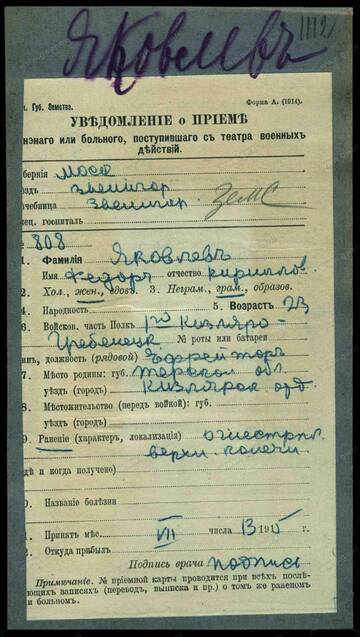 1112
Яковлевъ
м. Губ. Земства. Форма А. (1914).
УВѢДОМЛЕНІЕ о ПРІЕМѢ
ненаго или больного, поступившаго съ театра военныхъ
дѣйствій.
бернія Моск
ѣздъ Звенигор
чебница Звенигор Земс
ец. госпиталь
№ 808
1. Фамилія Яковлевъ
Имя Федоръ отчество Кириллов.
2. Хол., жен., вдов. 3. Неграм., грам., образов.
4. Народность 5. Возрастъ 23
6. Войсков. часть Полк 1го Кизляро-
Гребенск № роты или батареи
ин, должность (рядовой) Ефрейторъ
7. Мѣсто родины: губ. Терской об.
уѣздъ (городъ) Кизлярск отд.
8. Мѣстожительство (передъ войной): губ.
уѣздъ (городъ)
9. Раненіе (характеръ, локализація) огнестрѣл.
верхн. конечн.
дѣ и когда получено)
0. Названіе болѣзни
1. Принятъ мѣс. VII числа 13 1915 г.
2. Откуда прибылъ
Подпись врача подпись
Примѣчаніе. № пріемной карты проводится при всѣхъ послѣ-
ующихъ записяхъ (переводъ, выписка и пр.) о томъ же раненомъ
и больномъ.